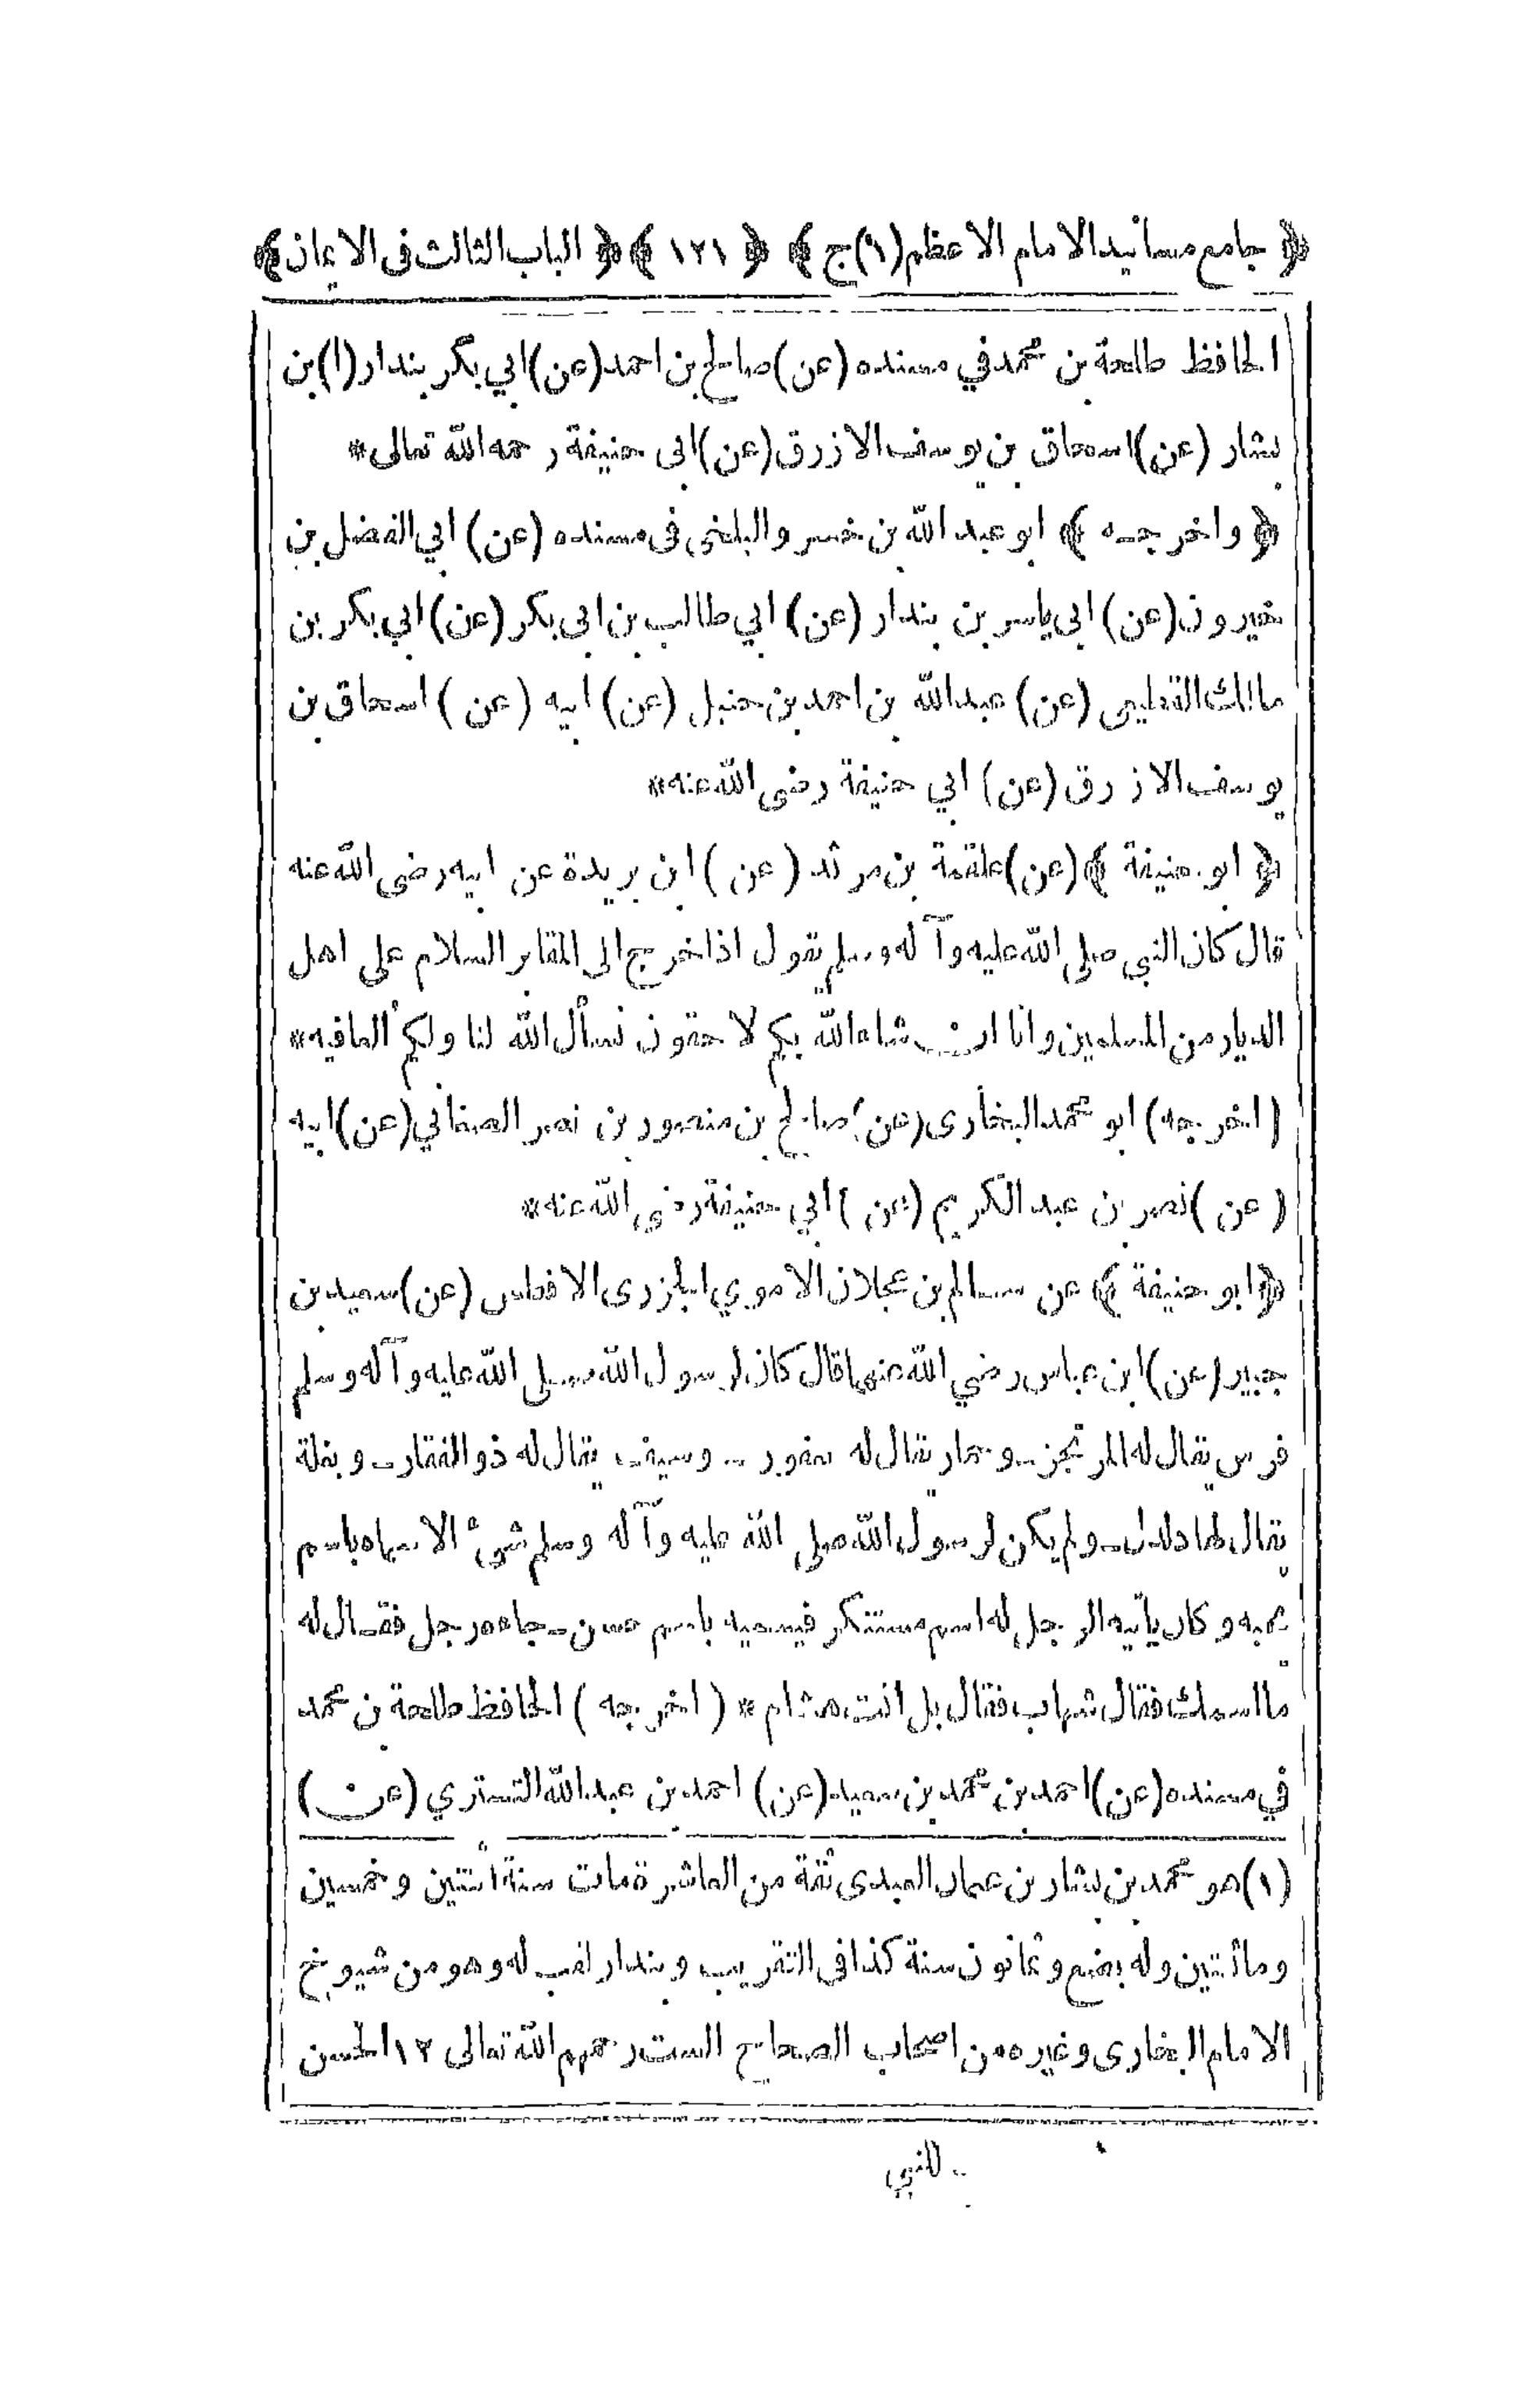 ﴿ جامع مسانيد الامام الاعظم (١) ج ﴾ ﴿ ١٢١ ﴾ ﴿ الباب الثالث في الايمان ﴾
الحافظ طلحة بن محمد في مسنده (عن) صالح بن احمد (عن) ابي بكر بندار (١) بن
بشار (عن) اسحاق بن يوسف الازرق (عن) ابى حنيفة رحمه الله تعالى*
﴿ واخرجه ﴾ ابو عبد الله بن خسرو البلخى فى مسنده (عن) ابي الفضل بن
خيرون (عن) ابى ياسر بن بندار (عن) ابي طالب بن ابى بكر (عن) ابي بكر بن
مالك القطيعى (عن) عبد الله بن احمد بن حنبل (عن) ابيه (عن) اسحاق بن
يوسف الازرق (عن) ابي حنيفة رضى الله عنه*
﴿ ابو حنيفة ﴾ (عن) علقمة بن مرثد (عن) ابن بريدة عن ابيه رضى الله عنه
قال كان النبي صلى الله عليه وآله وسلم يقول اذا خرج الى المقابر السلام على اهل
الديار من المسلمين وانا ان شاء الله بكم لاحقون نسأل الله لنا ولكم العافيه*
(اخرجه) ابو محمد البخارى (عن) صالح بن منصور بن نصر الصغاني (عن) ابيه
(عن) نصر بن عبد الكريم (عن) ابي حنيفة رضى الله عنه*
﴿ ابو حنيفة ﴾ عن سالم بن عجلان الاموي الجزرى الافطس (عن) سعيد بن
جبير (عن) ابن عباس رضي الله عنهما قال كان لرسول الله صلى الله عليه وآله وسلم
فرس يقال له المرتجز ـ وحمار يقال له يعفور ـ وسيف يقال له ذو الفقار ـ وبغلة
يقال لها دلدل ـ ولم يكن لرسول الله صلى الله عليه وآله وسلم شىء الا سماه باسم
يحبه وكان يأتيه الرجل له اسم مستنكر فيسميه باسم حسن ـ جاءه رجل فقال له
ما اسمك فقال شهاب فقال بل انت هشام * (اخرجه) الحافظ طلحة بن محمد
في مسنده (عن) احمد بن محمد بن سعيد (عن) احمد بن عبد الله التستري (عن)
(١) هو محمد بن بشار بن عمان العبدى ثقة من العاشرة مات سنة اثنتين وخمسين
ومأتين وله بضع وثمانون سنة كذا فى التقريب وبندار لقب له وهو من شيوخ
الامام البخارى وغيره من اصحاب الصحاح الست رحمهم الله تعالى ١٢ الحسن